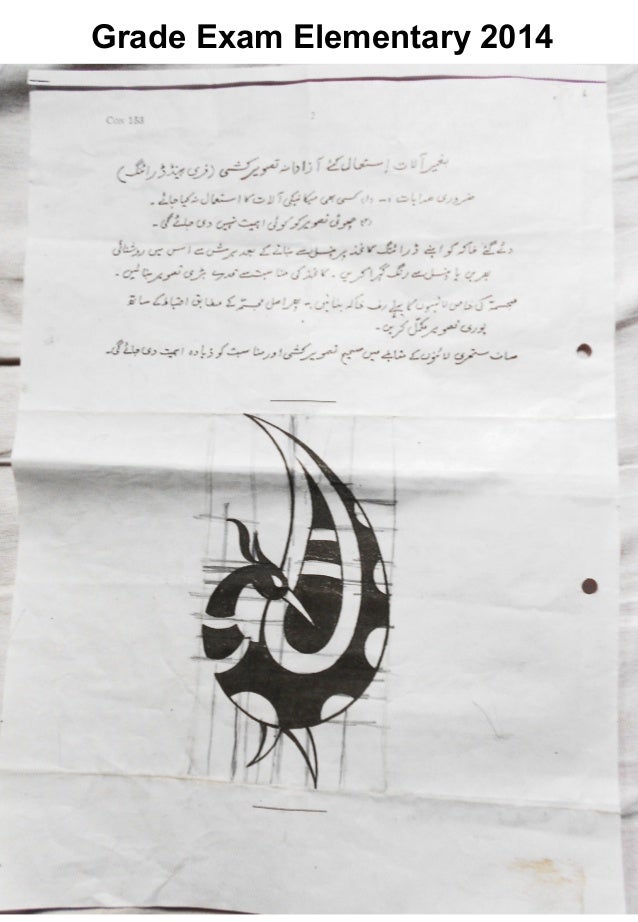 Grade Exam Elementary 2014
Con 153
2
بغیر آلات استعمال کئے آزادانہ تصویر کشی (فری ہینڈ ڈرائنگ)
ضروری ہدایات :- (۱) کسی بھی میکانیکی آلات کا استعمال نہ کیا جائے۔
(۲) چھوٹی تصویر کو کوئی اہمیت نہیں دی جائے گی۔
دئے گئے خاکہ کو اپنے ڈرائنگ کاغذ پر پنسل سے بنانے کے بعد برش سے اس میں روشنائی
بھریں یا پنسل سے رنگ گہرا کریں۔ کاغذ کی مناسبت سے قدرے بڑی تصویر بنائیں۔
کی خاص لائنوں کا پہلے رف خاکہ بنائیں۔ پھر اصل کے مطابق احتیاط کے ساتھ
پوری تصویر مکمل کریں۔
صاف ستھری لائنوں کے مقابلے میں صحیح تصویر کشی اور مناسبت کو زیادہ اہمیت دی جائے گی۔